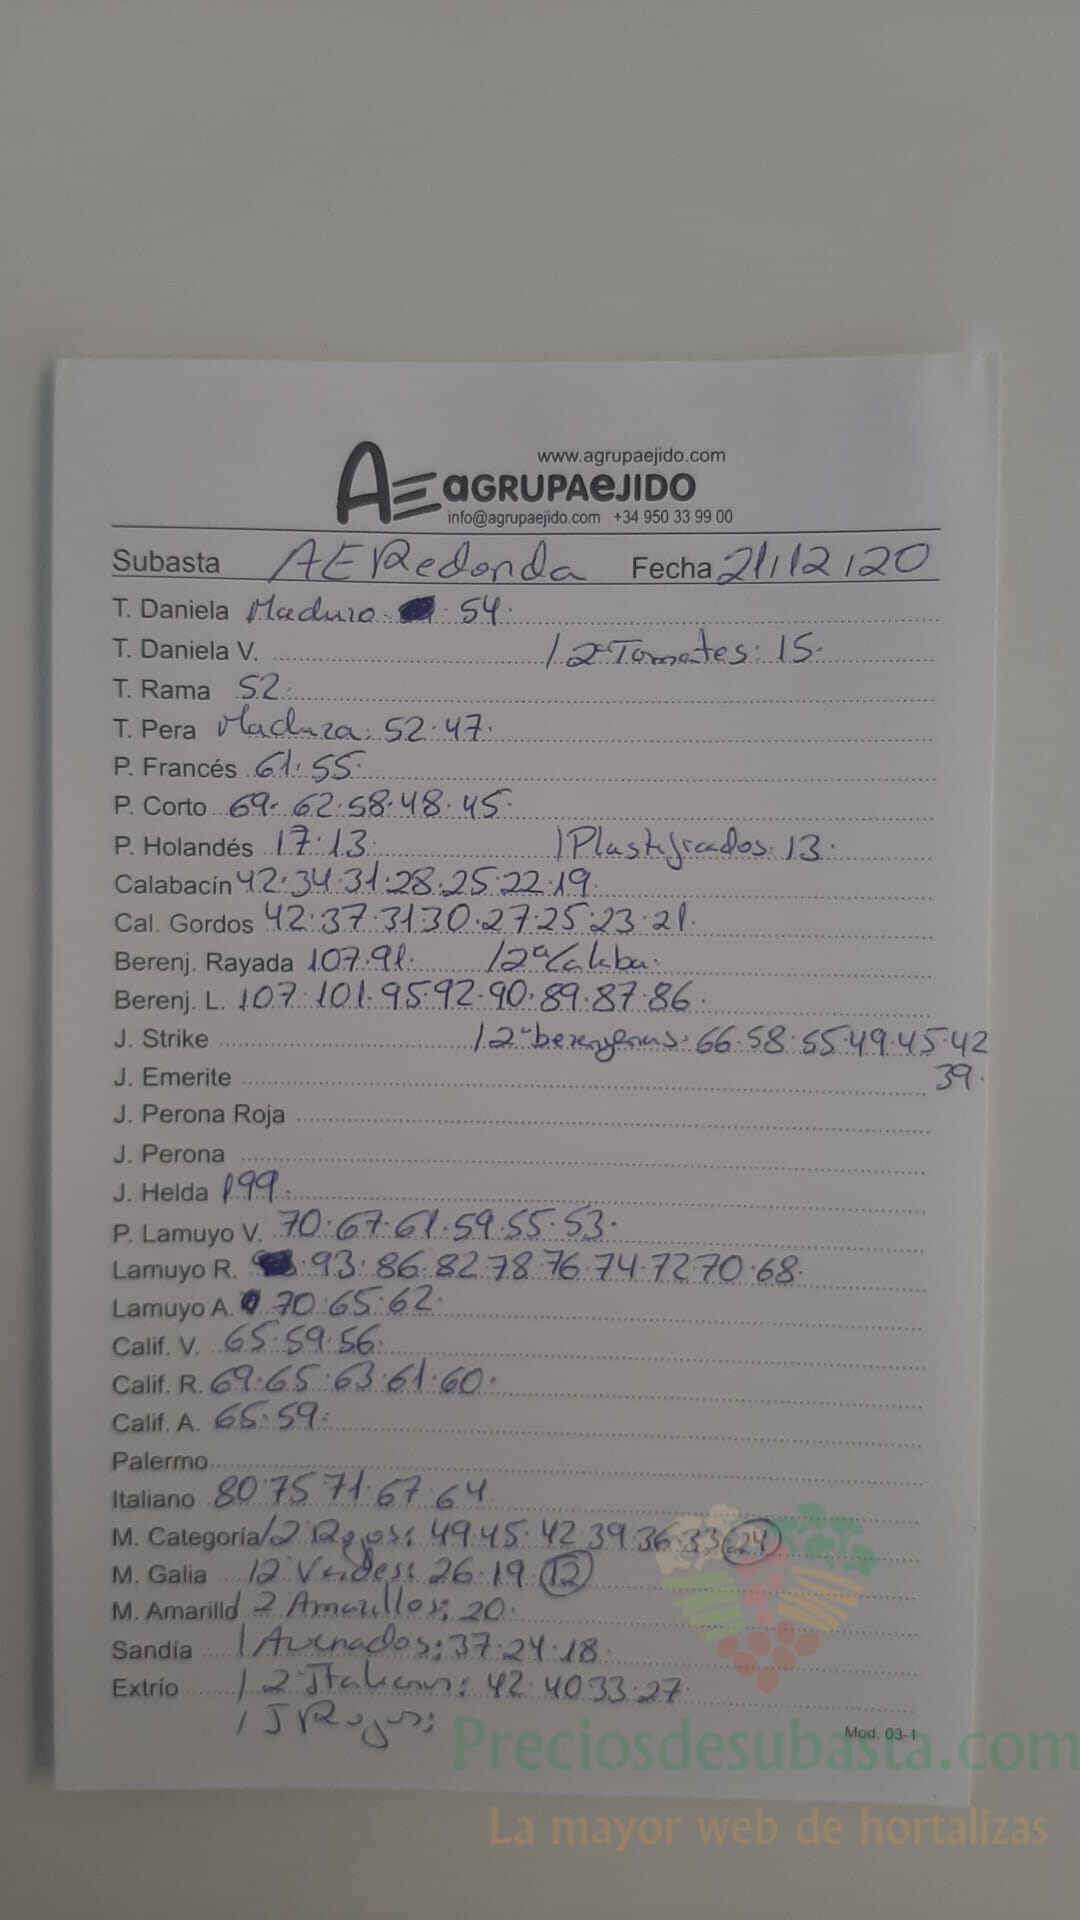 www.agrupaejido.com
AE aGRUPAeJIDO
info@agrupaejido.com +34 950 33 99 00
Subasta AE Redonda Fecha 21/12/20
T. Daniela Maduro: 54.
T. Daniela V. / 2ª Tomates: 15.
T. Rama 52.
T. Pera Madura: 52.47.
P. Francés 61.55.
P. Corto 69. 62.58.48.45.
P. Holandés 17.13. / Plastificados: 13.
Calabacín 42.34.31.28.25.22.19.
Cal. Gordos 42.37.31.30.27.25.23.21.
Berenj. Rayada 107.91. / 2ª Calaba.
Berenj. L. 107.101.95.92.90.89.87.86.
J. Strike / 2ª berenjenas: 66.58.55.49.45.42
J. Emerite 39.
J. Perona Roja
J. Perona
J. Helda 199.
P. Lamuyo V. 70.67.61.59.55.53.
Lamuyo R. 93.86.82.78.76.74.72.70.68.
Lamuyo A. 70.65.62.
Calif. V. 65.59.56.
Calif. R. 69.65.63.61.60.
Calif. A. 65.59.
Palermo
Italiano 80.75.71.67.64.
M. Categoría / 2 Rojos: 49.45.42.39.36.33.24
M. Galia / 2 Verdes: 26.19.12
M. Amarillo 2 Amarillos: 20.
Sandía / Asurados: 37.24.18.
Extrío / 2 Italianos: 42.40.33.27.
/ J Rojos:
Mod. 03-1
Preciosdesubasta.com
La mayor web de hortalizas